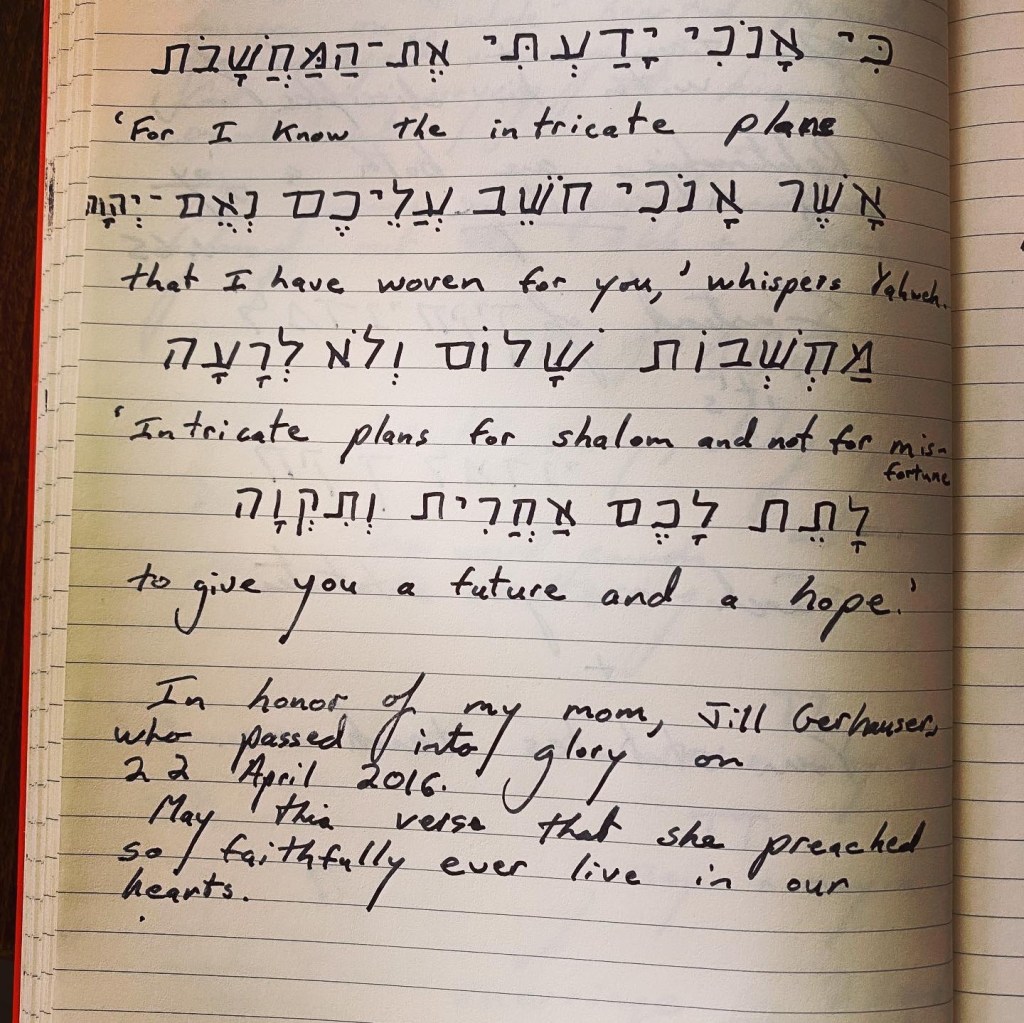 כִּי אָנֹכִי יָדַעְתִּי אֶת־הַמַּחֲשָׁבֹת
‘For I know the intricate plans
אֲשֶׁר אָנֹכִי חֹשֵׁב עֲלֵיכֶם נְאֻם־יְהוָה
that I have woven for you,’ whispers Yahweh.
מַחְשְׁבוֹת שָׁלוֹם וְלֹא לְרָעָה
‘Intricate plans for shalom and not for mis-
fortune
לָתֵת לָכֶם אַחֲרִית וְתִקְוָה
to give you a future and a hope.’
In honor of my mom, Jill Gerhauser,
who passed into glory on
22 April 2016.
May this verse that she preached
so faithfully ever live in our
hearts.